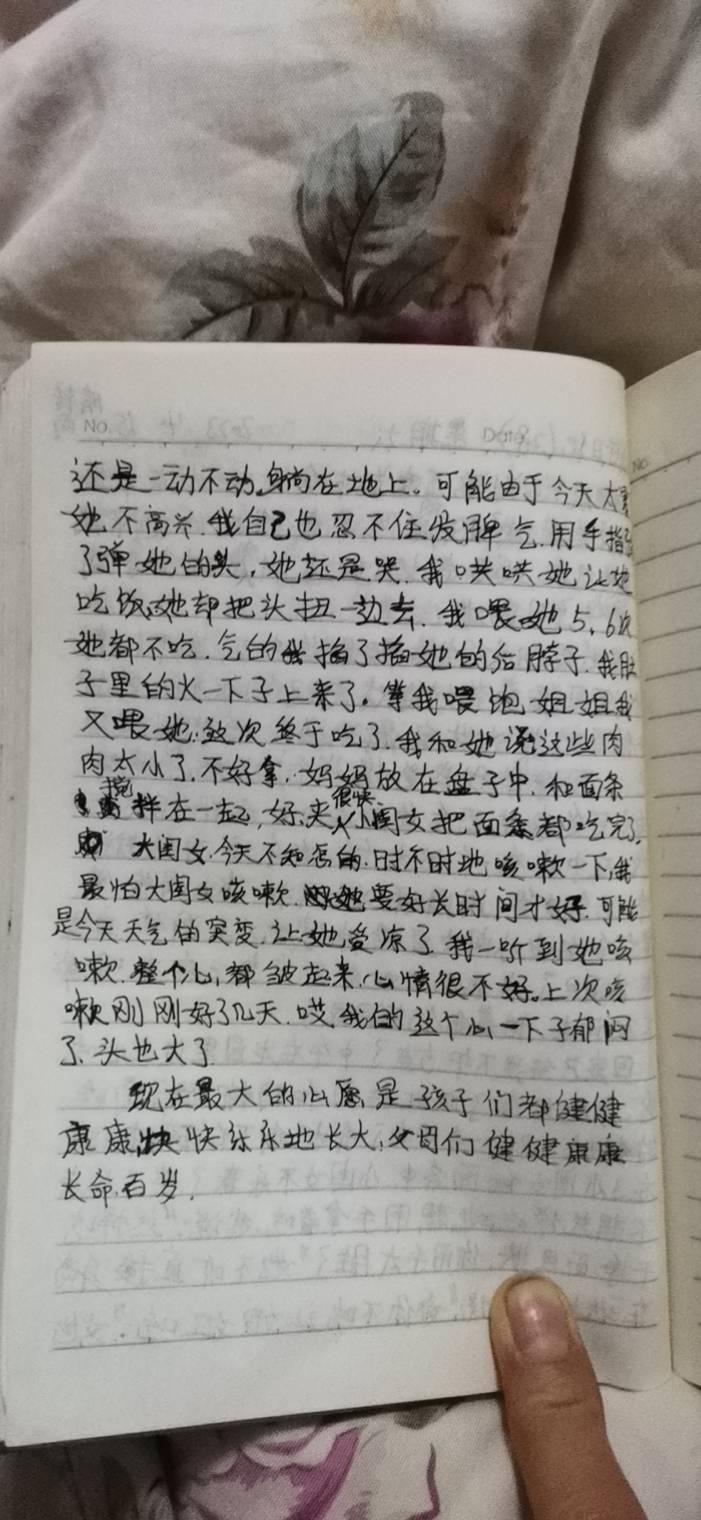 No.
Date
No.
还是一动不动躺在地上。可能由于今天太累
她不高兴.我自己也忍不住发脾气.用手指
了弹她的头,她还是哭.我哄哄她让她
吃饭,她却把头扭一边去.我喂她5、6次
她都不吃.气的我掐了掐她的后脖子.我肚
子里的火一下子上来了。等我喂饱姐姐我
又喂她.这次终于吃了.我和她说这些肉
肉太小了.不好拿.妈妈放在盘子中.和面条
搅拌在一起,好,夹.很快小闺女把面条都吃完了.
大闺女今天不知怎的.时不时地咳嗽一下,我
最怕大闺女咳嗽.她要好长时间才好.可能
是今天天气的突变.让她受凉了.我一听到她咳
嗽.整个心都皱起来,心情很不好。上次咳
嗽刚刚好了几天.哎,我的这个心一下子郁闷
了.头也大了
现在最大的心愿是孩子们都健健
康康,快快乐乐地长大,父母们健健康康
长命百岁.